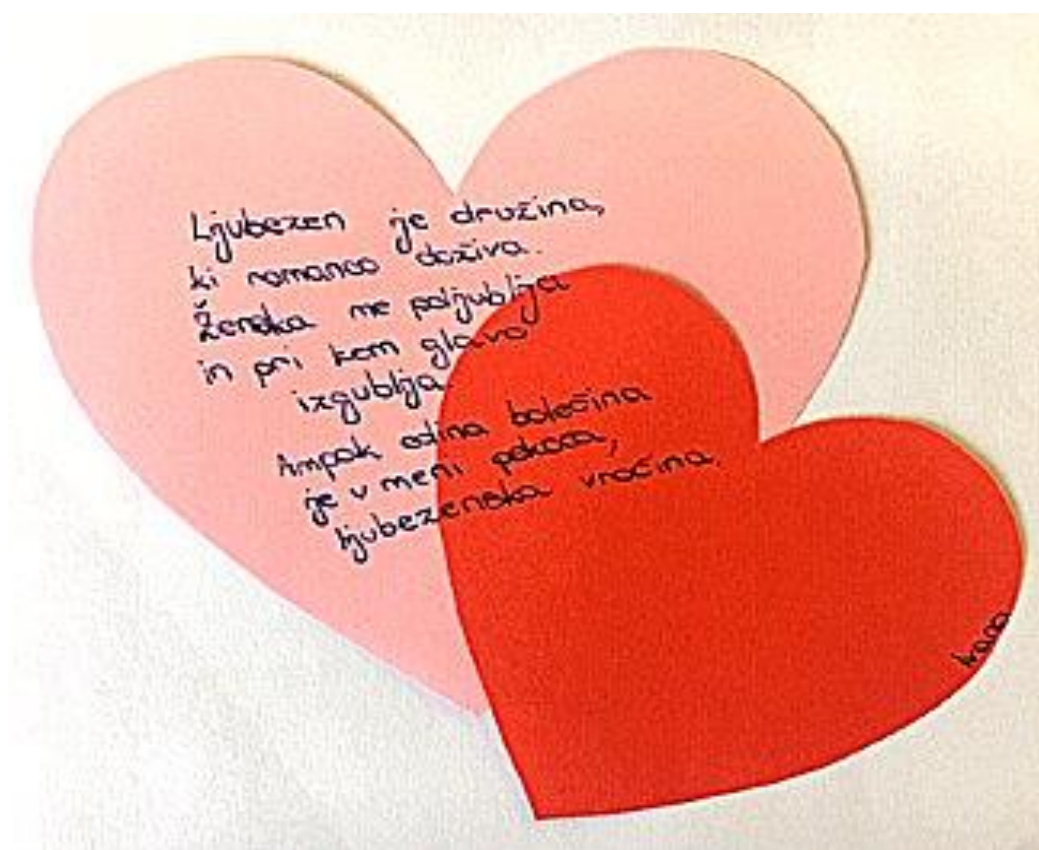 Ljubezen je družina,
ki romanco doživa.
Ženska me poljublja
in pri tem glavo
izgublja.
Ampak edina bolečina
je v meni pekoča,
ljubezenska vročina.